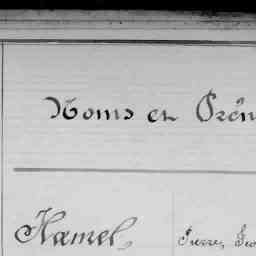 Noms et Prén
Hamel, Pierre,